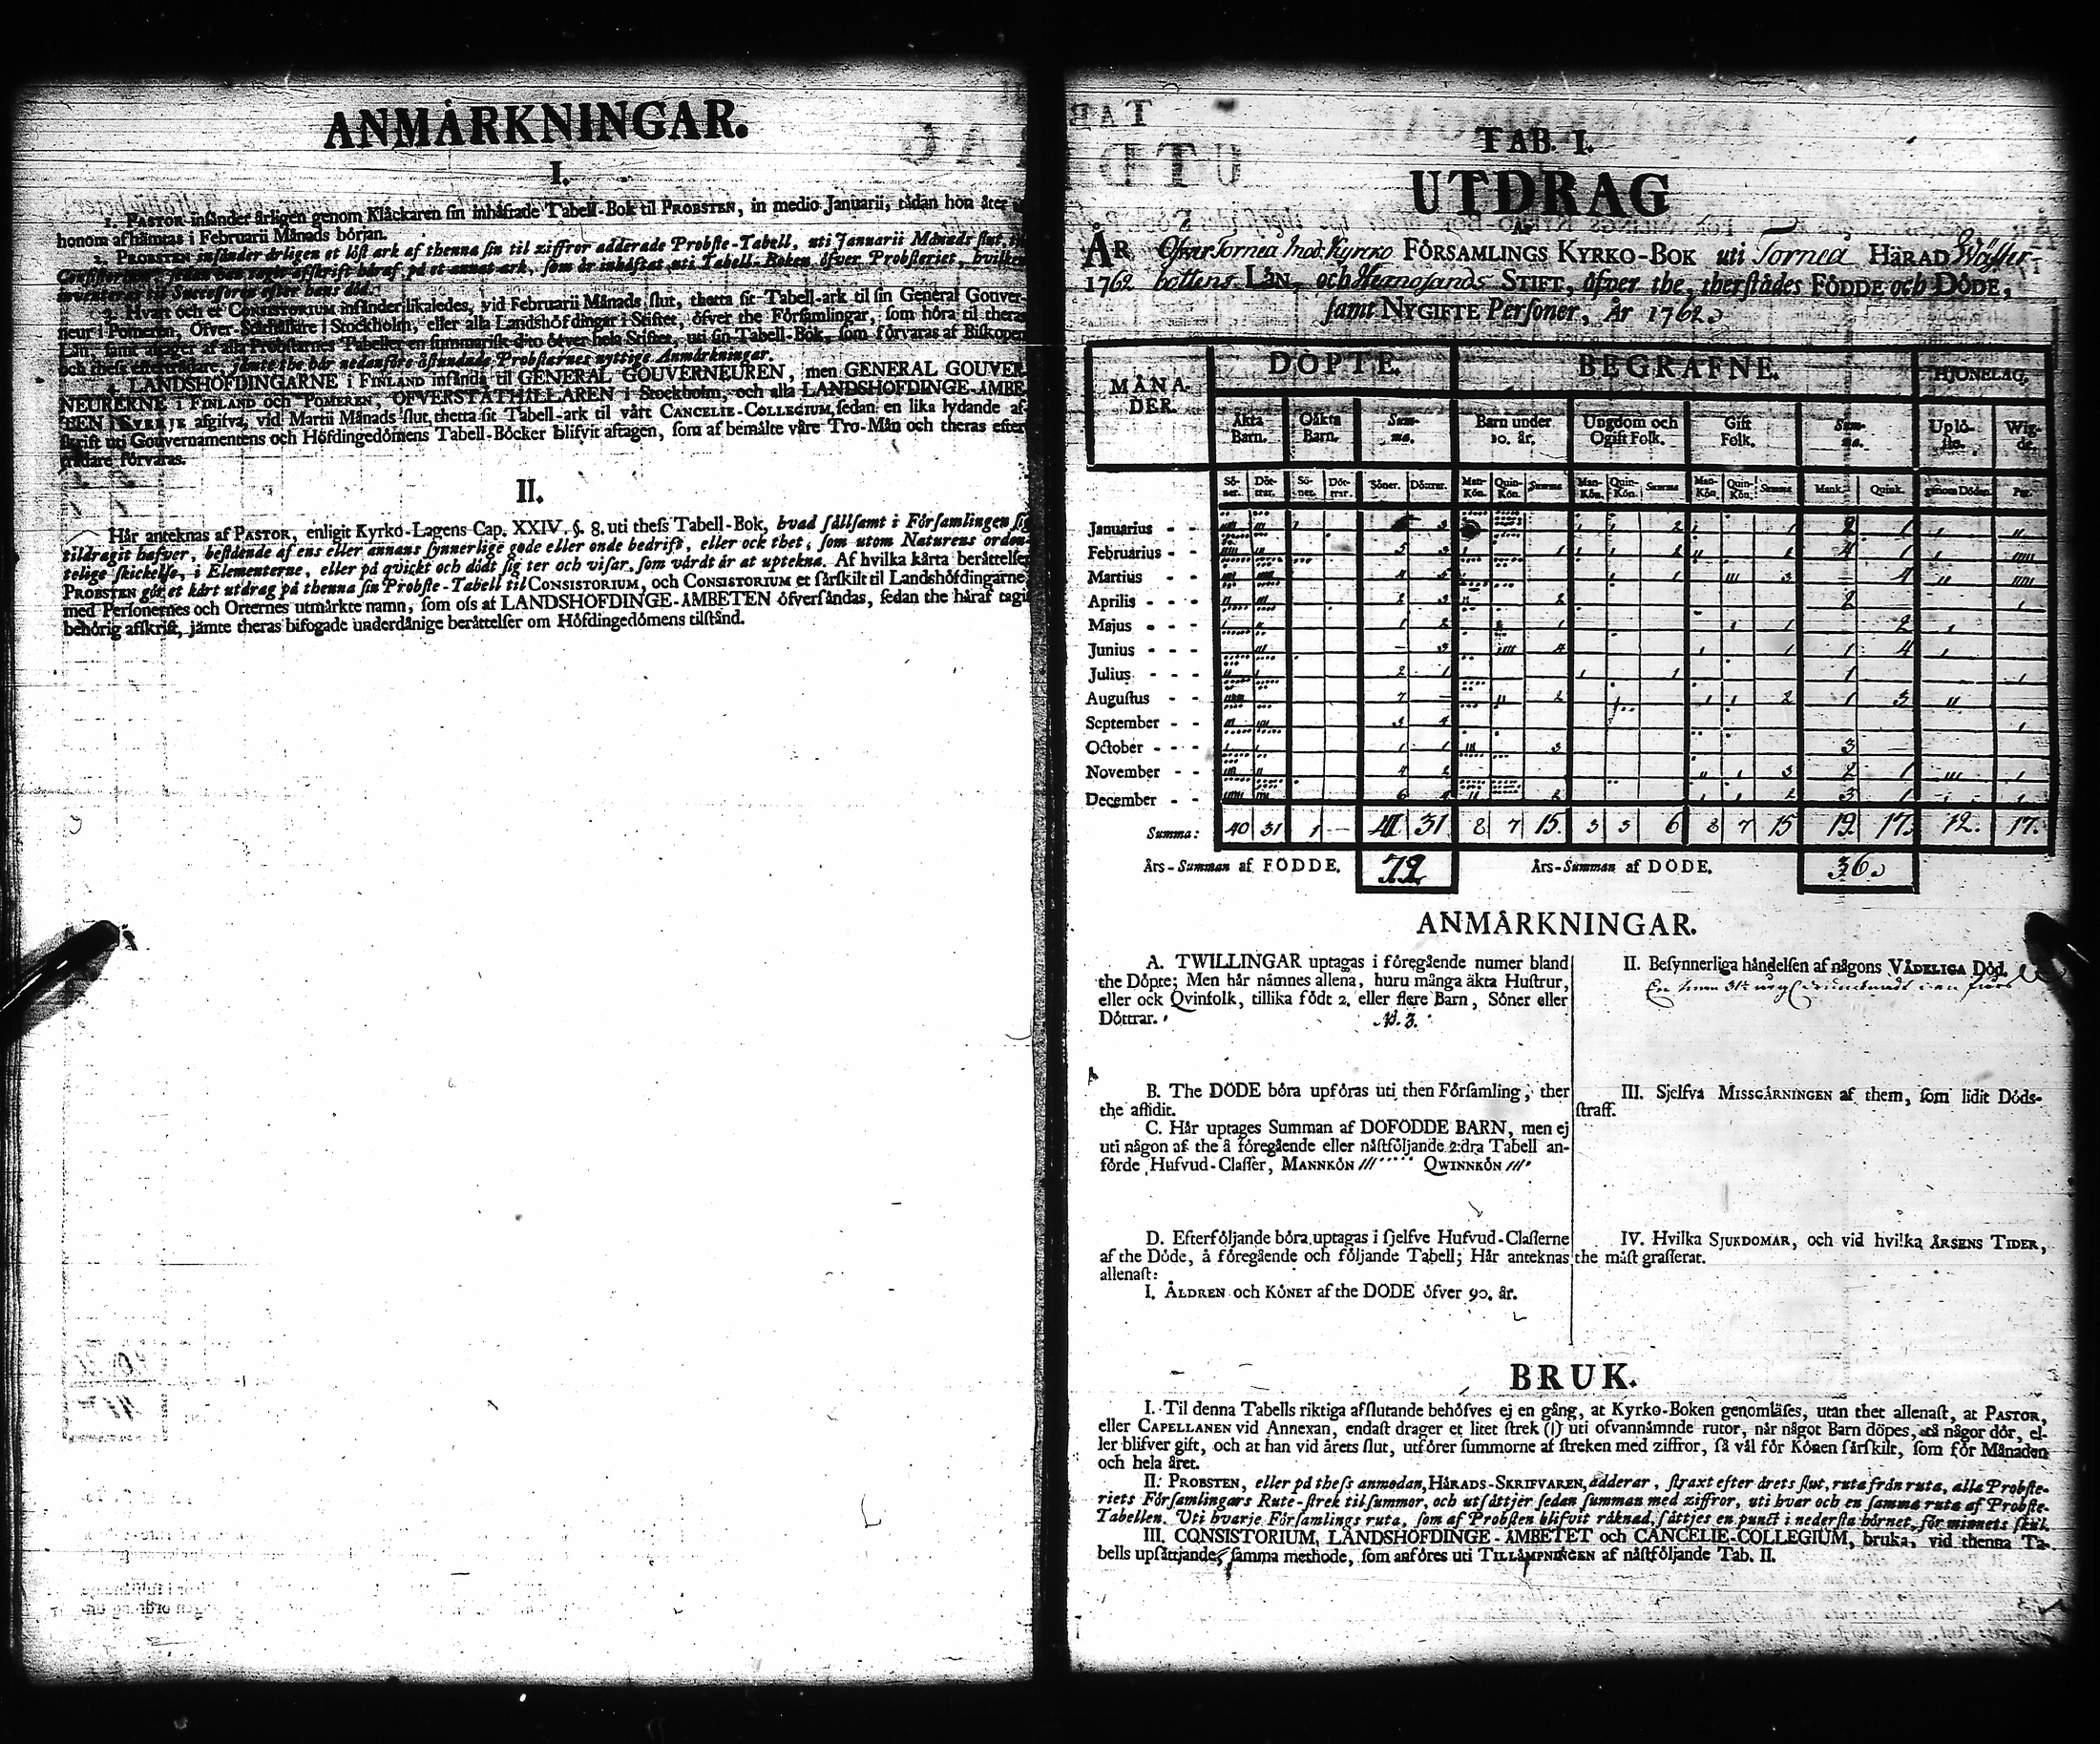 ANMÄRKNINGAR.
I.
1. PASTOR insänder årligen genom Klåckaren sin inhäftade Tabell-Bok til PROBSTEN, in medio Januarii, sådan hon åter
honom afhämtas i Februarii Månads början.
2. PROBSTEN insänder årligen et löst ark af thenna sin til ziffror adderade Probste-Tabell, uti Januarii Månads slut, til
Consistorium, sedan han tagit afskrift häraf på et annat ark, som är inhäftat uti Tabell-Boken öfver Probsteriet, hvilken
inventeras til Successoren efter hans död.
3. Hvart och et CONSISTORIUM insänder likaledes, vid Februarii Månads slut, thetta sit Tabell-ark til sin General Gouver-
neur i Pomeren, Öfver-Ståthållare i Stockholm, eller alla Landshöfdingar i Stiftet, öfver the Församlingar, som höra til theras
Län, samt aftager af alla Probstarnes Tabeller en summarisk dito öfver hela Stiftet, uti sin Tabell-Bok, som förvaras af Biskopen
och thess efterträdare, jämte the här nedanföre åstundade Probstarnes nyttige Anmärkningar.
4. LANDSHÖFDINGARNE i FINLAND insända til GENERAL GOUVERNEUREN, men GENERAL GOUVER-
NEURERNE i FINLAND och POMEREN, ÖFVERSTÅTHÅLLAREN i Stockholm, och alla LANDSHÖFDINGE-ÄMBE-
TEN i SVERJE afgifva, vid Martii Månads slut, thetta sit Tabell-ark til vårt CANCELIE-COLLEGIUM, sedan en lika lydande af-
skrift uti Gouvernamentens och Höfdingedömens Tabell-Böcker blifvit aftagen, som af bemälte våre Tro-Män och theras efter-
trädare förvaras.
II.
Här anteknas af PASTOR, enligit Kyrko-Lagens Cap. XXIV. §. 8. uti thess Tabell-Bok, hvad sällsamt i Församlingen sig
tildragit hafver, bestående af ens eller annans synnerlige gode eller onde bedrift, eller ock thet, som utom Naturens orden-
telige skickelse, i Elementerne, eller på qvickt och dödt sig ter och visar, som värdt är at uptekna. Af hvilka kårta berättelser
PROBSTEN gör et kårt utdrag på thenna sin Probste-Tabell til CONSISTORIUM, och CONSISTORIUM et särskilt til Landshöfdingarne,
med Personernes och Orternes utmärkte namn, som oss af LANDSHÖFDINGE-ÄMBETEN öfversändas, sedan the häraf tagit
behörig afskrift, jämte theras bifogade underdånige berättelser om Höfdingedömens tilstånd.
TAB. I.
UTDRAG
AF
ÅR Öfver Torneå Mod. Kyrko FÖRSAMLINGS KYRKO-BOK uti Torneå HÄRAD Wäster-
1762 bottens LÄN, och Hernösands STIFT, öfver the, therstädes FÖDDE och DÖDE,
samt NYGIFTE Personer, År 1762.
MÅNA- DER. DÖPTE. BEGRAFNE. HJONELAG.
Äkta Barn. Oäkta Barn. Summa. Barn under 10. år. Ungdom och Ogift Folk. Gift Folk. Summa. Uplöste. Wigde.
Söner. Döttrar. Söner. Döttrar. Söner. Döttrar. Man-Kön. Quin-Kön. Summa Man-Kön. Quin-Kön. Summa Man-Kön. Quin-Kön. Summa Mank. Quink. genom Döden. Par.
Januarius - - 3 2 1 2 1
Februarius - - 5 3 1 2 4 1
Martius - - 4 5 1 3 4
Aprilis - - - 2 3 2 2
Majus - - - 1 2 1 1 2
Junius - - - – 3 4 1 1 4
Julius - - - 2 1 1 1
Augustus - - 7 – 2 2 1 3
September - - 3 4
October - - - 1 1 3 3 –
November - - 4 2 3 2 1
December - - 6 4 2 2 3 1
Summa: 40 31 1 – 41 31 8 7 15. 3 3 6 8 7 15 19 17. 12. 17.
Års-Summan af FÖDDE. 72 Års-Summan af DÖDE. 36.
ANMÄRKNINGAR.
A. TWILLINGAR uptagas i föregående numer bland
the Döpte; Men här nämnes allena, huru många äkta Hustrur,
eller ock Qvinfolk, tillika födt 2. eller flere Barn, Söner eller
Döttrar.
N. 3.
B. The DÖDE böra upföras uti then Församling, ther
the aflidit.
C. Här uptages Summan af DÖFÖDDE BARN, men ej
uti någon af the å föregående eller nästföljande 2:dra Tabell an-
förde Hufvud-Classer, MANNKÖN /// QWINNKÖN ///
D. Efterföljande böra uptagas i sjelfve Hufvud-Classerne
af the Döde, å föregående och följande Tabell; Här anteknas
allenast:
I. ÅLDREN och KÖNET af the DÖDE öfver 90. år.
II. Besynnerliga händelsen af någons VÅDELIGA Död.
III. Sjelfva MISSGÄRNINGEN af them, som lidit Döds-
straff.
IV. Hvilka SJUKDOMAR, och vid hvilka ÅRSENS TIDER,
the mäst grasserat.
BRUK.
I. Til denna Tabells riktiga afslutande behöfves ej en gång, at Kyrko-Boken genomläses, utan thet allenast, at PASTOR,
eller CAPELLANEN vid Annexan, endast drager et litet strek (|) uti ofvannämnde rutor, når något Barn döpes, etå någor dör, el-
ler blifver gift, och at han vid årets slut, utförer summorne af streken med ziffror, så väl för Könen särskilt, som för Månaden
och hela året.
II. PROBSTEN, eller på thess anmodan, HÄRADS-SKRIFVAREN, adderar, straxt efter årets slut, ruta från ruta, alla Probste-
riets Församlingars Rute-strek til summor, och utsättjer sedan summan med ziffror, uti hvar och en samma ruta af Probste-
Tabellen. Uti hvarje Församlings ruta, som af Probsten blifvit räknad, sättjes en punct i nedersta hörnet, för minnets skul.
III. CONSISTORIUM, LANDSHÖFDINGE-ÄMBETET och CANCELIE-COLLEGIUM, bruka, vid thenna Ta-
bells upsättjande, samma methode, som anföres uti TILLÄMPNINGEN af nästföljande Tab. II.